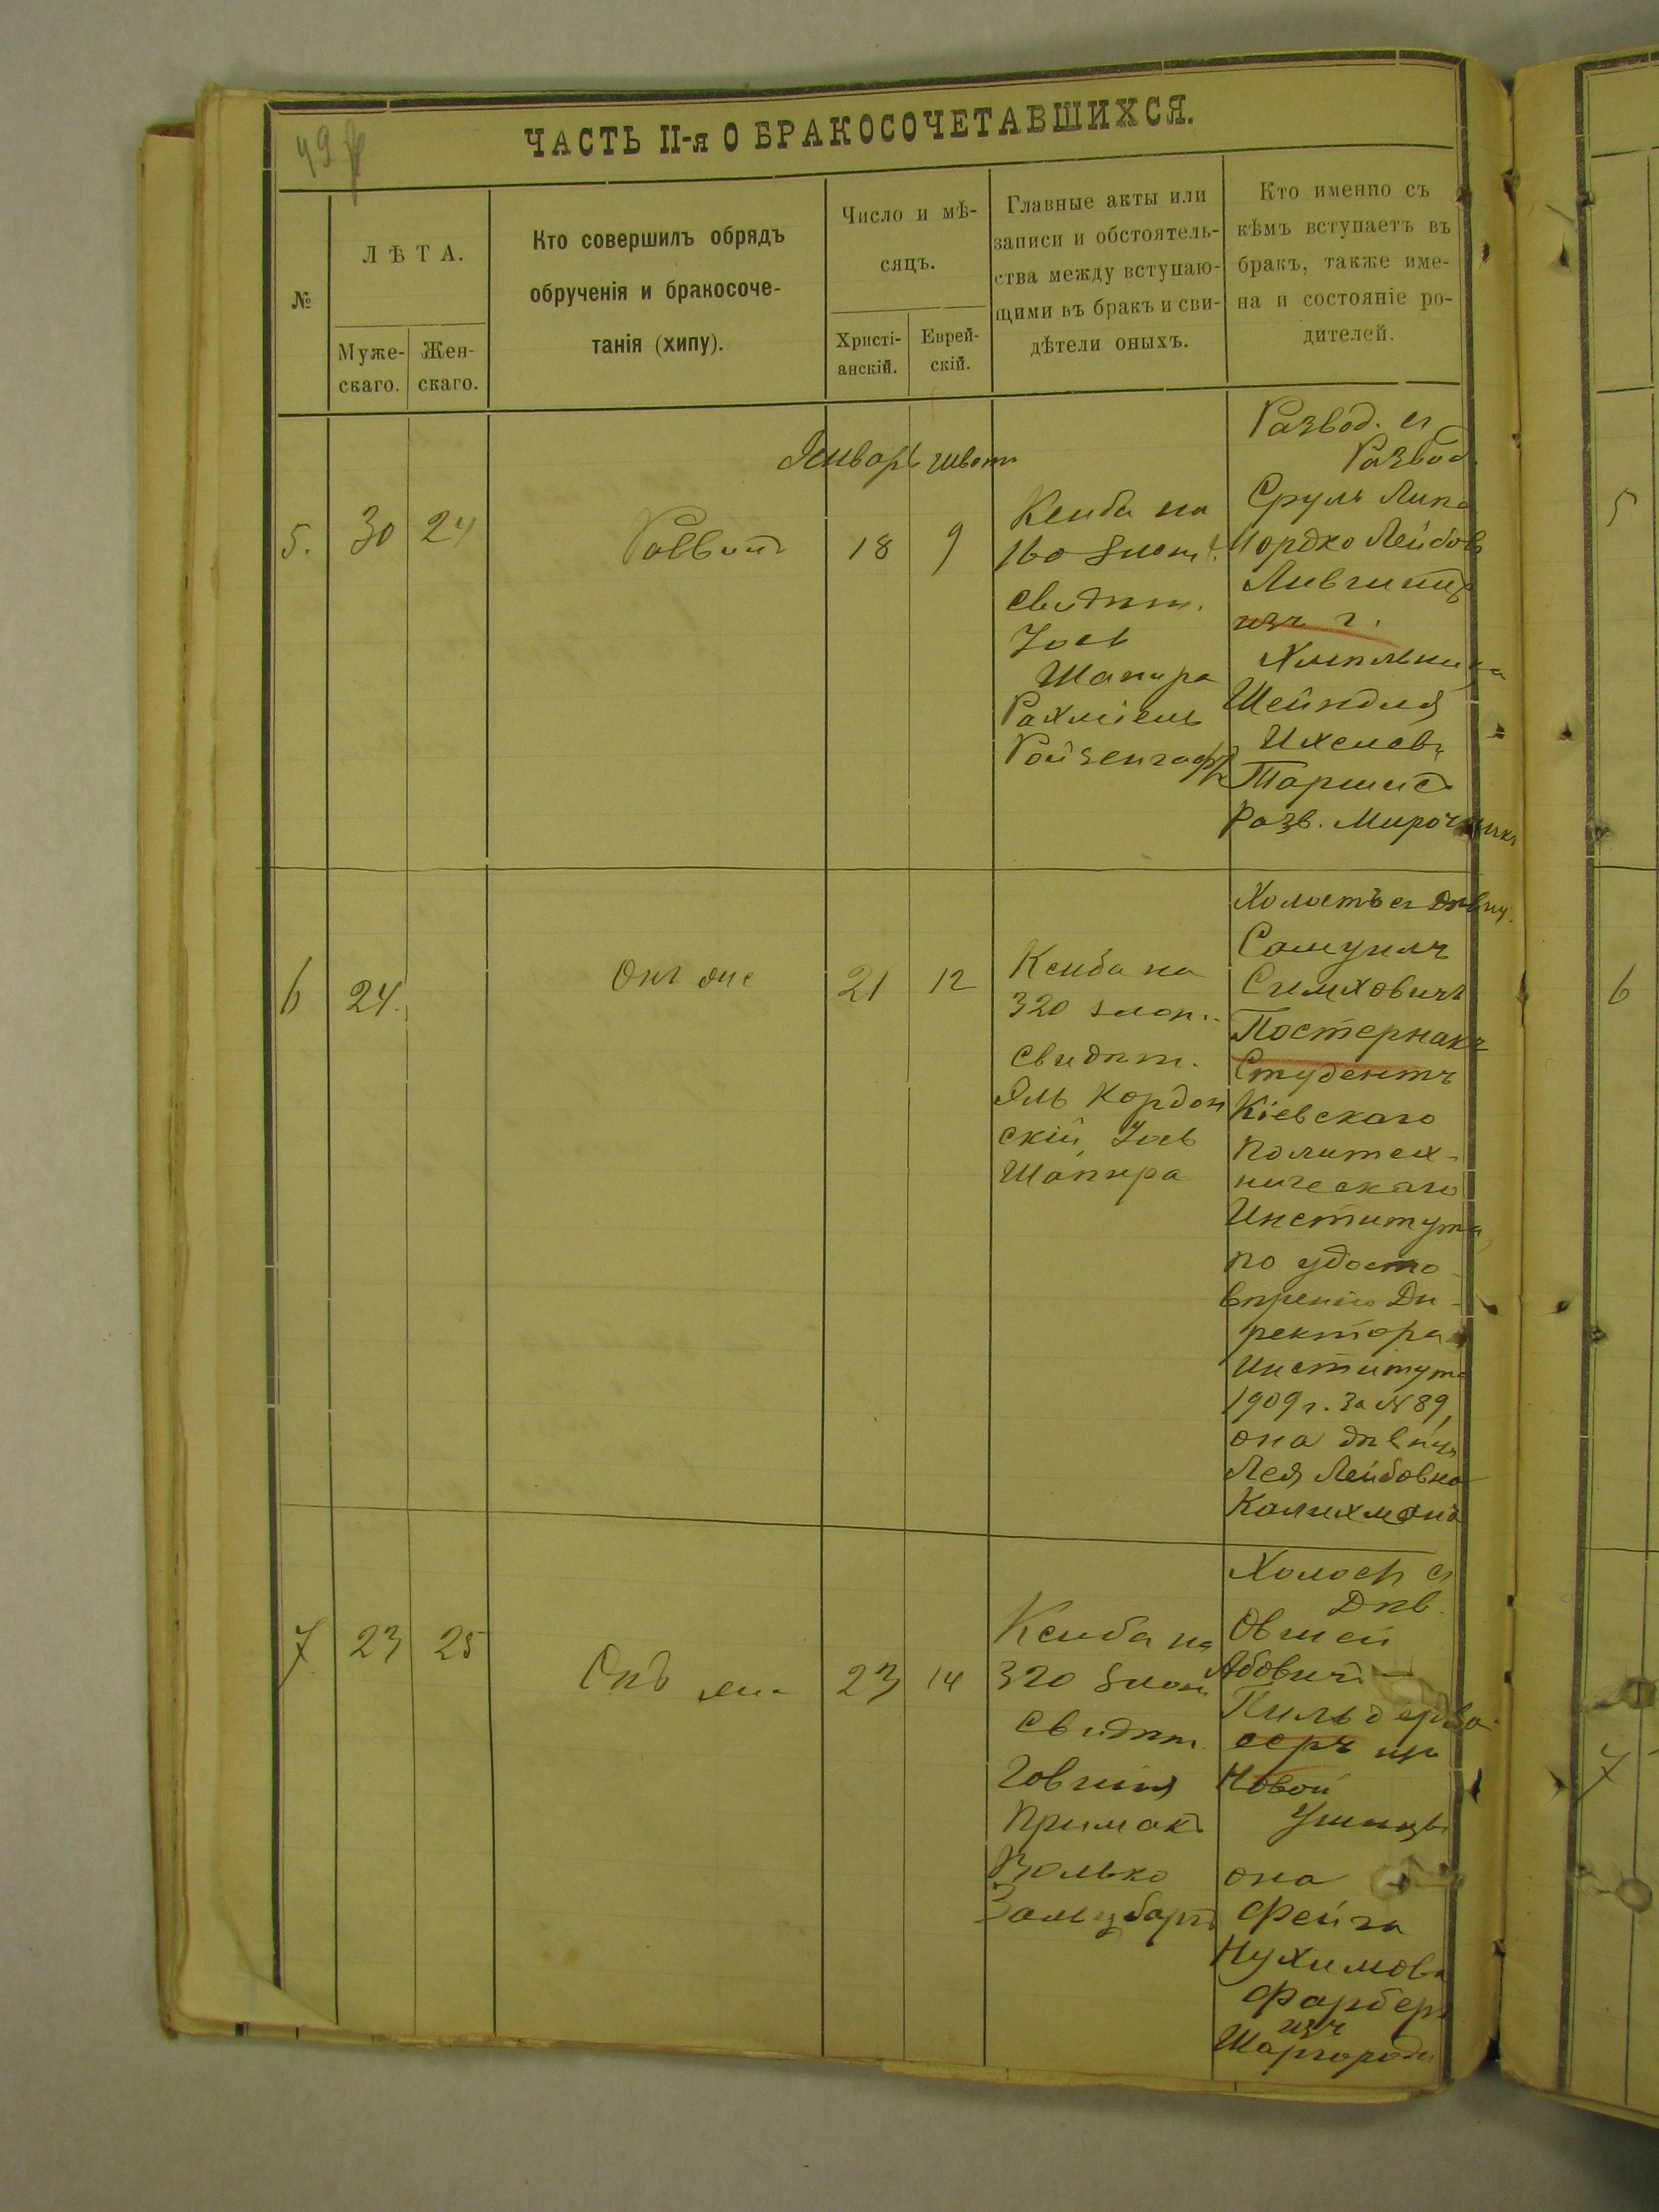 49
ЧАСТЬ II-я О БРАКОСОЧЕТАВШИХСЯ.
№
ЛѢТА.
Муже-
скаго.
Жен-
скаго.
Кто совершилъ обрядъ
обрученія и бракосоче-
танія (хипу).
Число и мѣ-
сяцъ.
Христі-
анскій.
Еврей-
скій.
Главные акты или
записи и обстоятель-
ства между вступаю-
щими въ бракъ и сви-
дѣтели оныхъ.
Кто именно съ
кѣмъ вступаетъ въ
бракъ, также име-
на и состояніе ро-
дителей.
Январь шватъ
5.
30
24
Раввинъ
18
9
Ксиба на
160 злот.
свидѣт.
Іось
Шапира
Рахміель
Ройзенгафъ
Развод. съ
Развод.
Сруль Липа
Мордко Лейбовъ
Лившицъ
изъ г.
Хмѣльника
Шейндля
Ихелева
Таршис
Разв. Мирочникъ
6
24.
Онъ же
21
12
Ксиба на
320 злот.
Свидѣт.
Эль Кордон
скій, Іось
Шапира
Холостъ съ дѣвиц.
Самуилъ
Симховичъ
Постернакъ
Студентъ
Кіевскаго
Политех-
ническаго
Института
по удосто-
вѣренію Ди-
ректора
Института
1909 г. за № 89,
она дѣвица
Лея Лейбовна
Калихмана
7
23
25
Онъ же
23
14
Ксиба на
320 злот.
Свидѣт.
Говшія
Примакъ
Волько
Залцбаргъ
Холост съ
Дѣв.
Овшей
Абовичъ
Пильдерва-
серъ изъ
Новой
Ушицы
она
Фейга
Нухимова
Фарберъ
изъ
Шаргорода
5
6
7